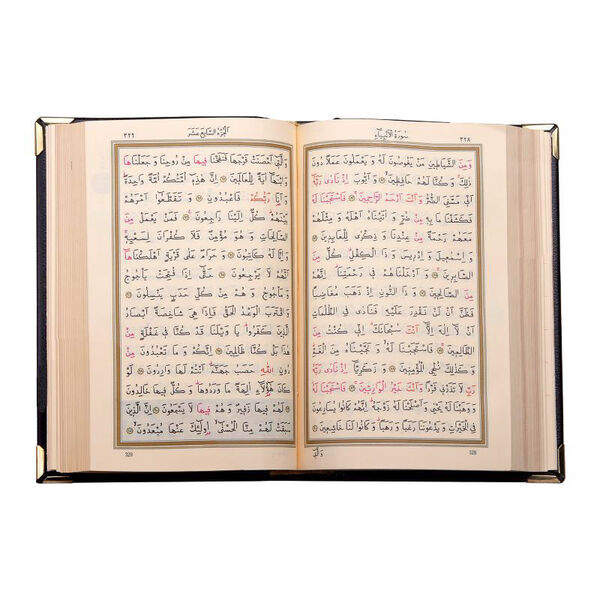 ٣٢٨ سُورَةُ الْاَنْبِيَٓاءِ
وَمِنَ الشَّيَاط۪ينِ مَنْ يَغُوصُونَ لَهُ وَيَعْمَلُونَ عَمَلًا دُونَ
ذٰلِكَ وَكُنَّا لَهُمْ حَافِظ۪ينَ وَاَيُّوبَ اِذْ نَادٰى رَبَّهُٓ
اَنّ۪ي مَسَّنِيَ الضُّرُّ وَاَنْتَ اَرْحَمُ الرَّاحِم۪ينَ فَاسْتَجَبْنَا لَهُ
فَكَشَفْنَا مَا بِه۪ مِنْ ضُرٍّ وَاٰتَيْنَاهُ اَهْلَهُ وَمِثْلَهُمْ
مَعَهُمْ رَحْمَةً مِنْ عِنْدِنَا وَذِكْرٰى لِلْعَابِد۪ينَ
وَاِسْمٰع۪يلَ وَاِدْر۪يسَ وَذَا الْكِفْلِ كُلٌّ مِنَ
الصَّابِر۪ينَ وَاَدْخَلْنَاهُمْ ف۪ي رَحْمَتِنَا اِنَّهُمْ
مِنَ الصَّالِح۪ينَ وَذَا النُّونِ اِذْ ذَهَبَ مُغَاضِبًا
فَظَنَّ اَنْ لَنْ نَقْدِرَ عَلَيْهِ فَنَادٰى فِي الظُّلُمَاتِ
اَنْ لَٓا اِلٰهَ اِلَّٓا اَنْتَ سُبْحَانَكَ اِنّ۪ي كُنْتُ مِنَ
الظَّالِم۪ينَ فَاسْتَجَبْنَا لَهُ وَنَجَّيْنَاهُ مِنَ الْغَمِّ
وَكَذٰلِكَ نُنْجِي الْمُؤْمِن۪ينَ وَزَكَرِيَّٓا اِذْ نَادٰى رَبَّهُ
رَبِّ لَا تَذَرْن۪ي فَرْدًا وَاَنْتَ خَيْرُ الْوَارِث۪ينَ فَاسْتَجَبْنَا لَهُ
وَوَهَبْنَا لَهُ يَحْيٰى وَاَصْلَحْنَا لَهُ زَوْجَهُ اِنَّهُمْ كَانُوا يُسَارِعُونَ
فِي الْخَيْرَاتِ وَيَدْعُونَنَا رَغَبًا وَرَهَبًا وَكَانُوا لَنَا خَاشِع۪ينَ
وَالَّت۪ٓي
328
اَلْجُزْءُ السَّابِعَ عَشَرَ ٣٢٩
وَالَّت۪ٓي اَحْصَنَتْ فَرْجَهَا فَنَفَخْنَا ف۪يهَا مِنْ رُوحِنَا وَجَعَلْنَاهَا
وَابْنَهَٓا اٰيَةً لِلْعَالَم۪ينَ اِنَّ هٰذِه۪ٓ اُمَّتُكُمْ اُمَّةً وَاحِدَةً
وَاَنَا رَبُّكُمْ فَاعْبُدُونِ وَتَقَطَّعُٓوا اَمْرَهُمْ
بَيْنَهُمْ كُلٌّ اِلَيْنَا رَاجِعُونَ فَمَنْ يَعْمَلْ مِنَ
الصَّالِحَاتِ وَهُوَ مُؤْمِنٌ فَلَا كُفْرَانَ لِسَعْيِه۪
وَاِنَّا لَهُ كَاتِبُونَ وَحَرَامٌ عَلٰى قَرْيَةٍ اَهْلَكْنَاهَٓا
اَنَّهُمْ لَا يَرْجِعُونَ حَتّٰٓى اِذَا فُتِحَتْ يَأْجُوجُ
وَمَأْجُوجُ وَهُمْ مِنْ كُلِّ حَدَبٍ يَنْسِلُونَ
وَاقْتَرَبَ الْوَعْدُ الْحَقُّ فَاِذَا هِيَ شَاخِصَةٌ اَبْصَارُ
الَّذ۪ينَ كَفَرُوا يَا وَيْلَنَا قَدْ كُنَّا ف۪ي غَفْلَةٍ مِنْ
هٰذَا بَلْ كُنَّا ظَالِم۪ينَ اِنَّكُمْ وَمَا تَعْبُدُونَ مِنْ
دُونِ اللّٰهِ حَصَبُ جَهَنَّمَ اَنْتُمْ لَهَا وَارِدُونَ لَوْ
كَانَ هٰٓؤُ۬لَٓاءِ اٰلِهَةً مَا وَرَدُوهَا وَكُلٌّ ف۪يهَا خَالِدُونَ
لَهُمْ ف۪يهَا زَف۪يرٌ وَهُمْ ف۪يهَا لَا يَسْمَعُونَ اِنَّ الَّذ۪ينَ
سَبَقَتْ لَهُمْ مِنَّا الْحُسْنٰٓى اُو۬لٰٓئِكَ عَنْهَا مُبْعَدُونَ
329